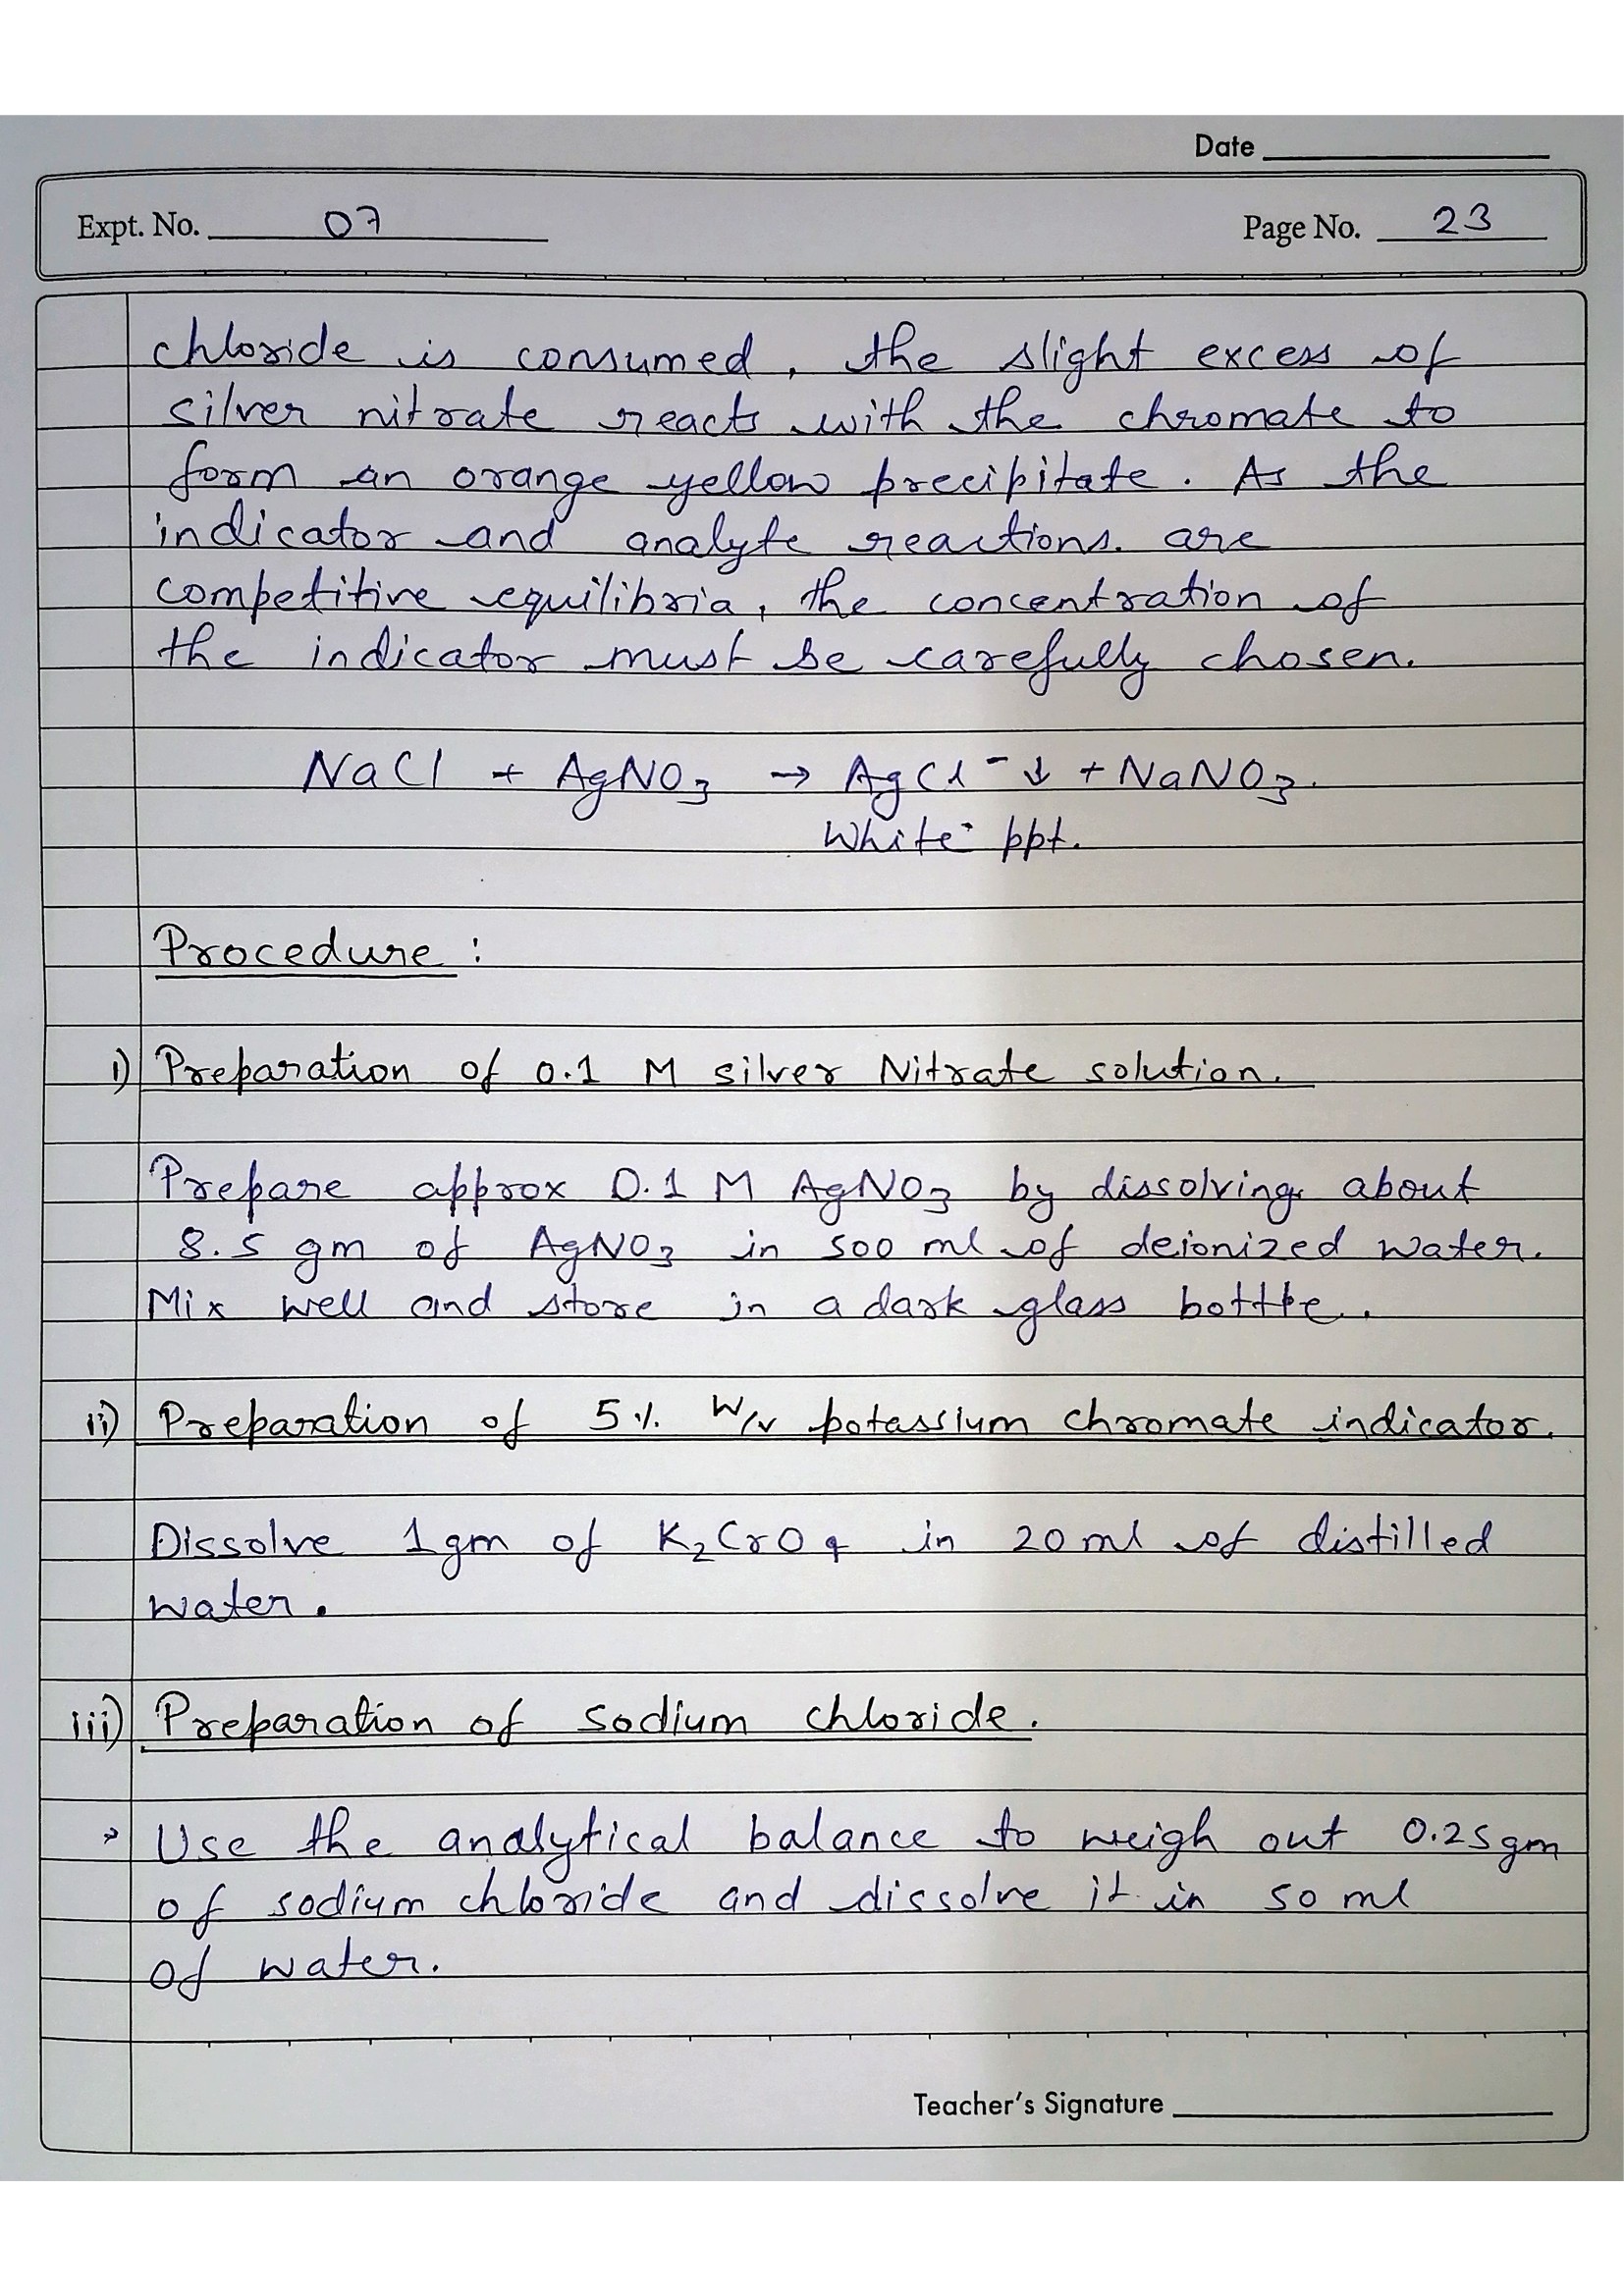 Date
Expt. No. 07 Page No. 23
chloride is consumed, the slight excess of
silver nitrate reacts with the chromate to
form an orange yellow precipitate. As the
indicator and analyte reactions. are
competitive equilibria, the concentration of
the indicator must be carefully chosen.
NaCl + AgNO3 → AgCl⁻ ↓ + NaNO3.
White ppt.
Procedure :
i) Preparation of 0.1 M silver Nitrate solution.
Prepare approx 0.1 M AgNO3 by dissolving about
8.5 gm of AgNO3 in 500 ml of deionized water.
Mix well and store in a dark glass bottle.
ii) Preparation of 5% W/v potassium chromate indicator.
Dissolve 1gm of K2CrO4 in 20 ml of distilled
water.
iii) Preparation of sodium chloride.
→ Use the analytical balance to weigh out 0.25gm
of sodium chloride and dissolve it in 50 ml
of water.
Teacher's Signature